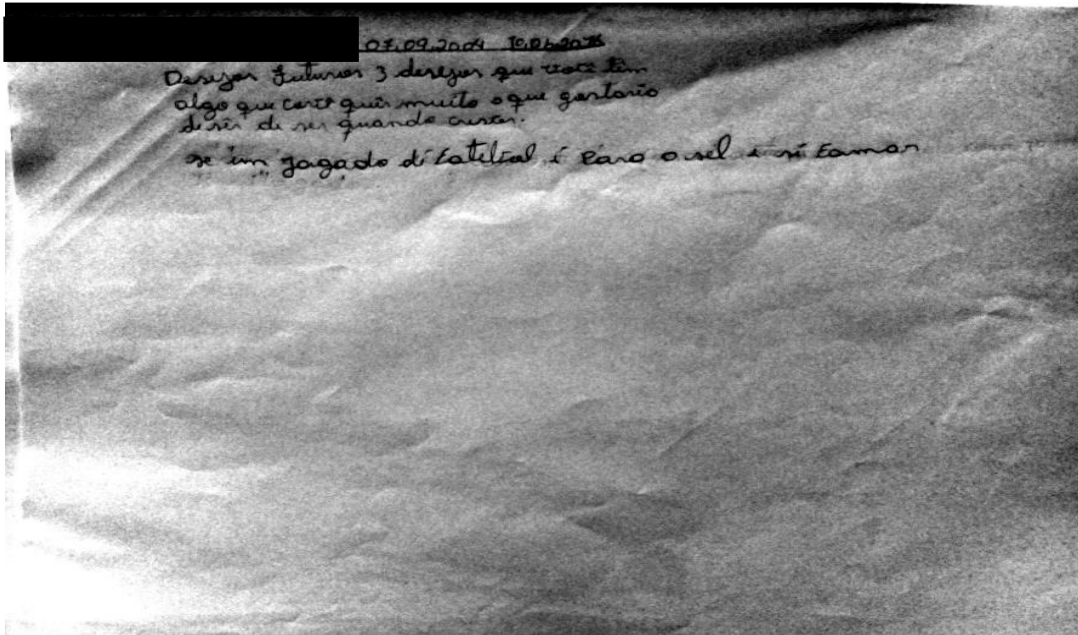 07.09.2004 10.06.2016
Desejos futuros 3 desejos que você tem
algo que você quer muito o que gostario
de ser de ser quando creser.
se um jogado di i Para o sel i si